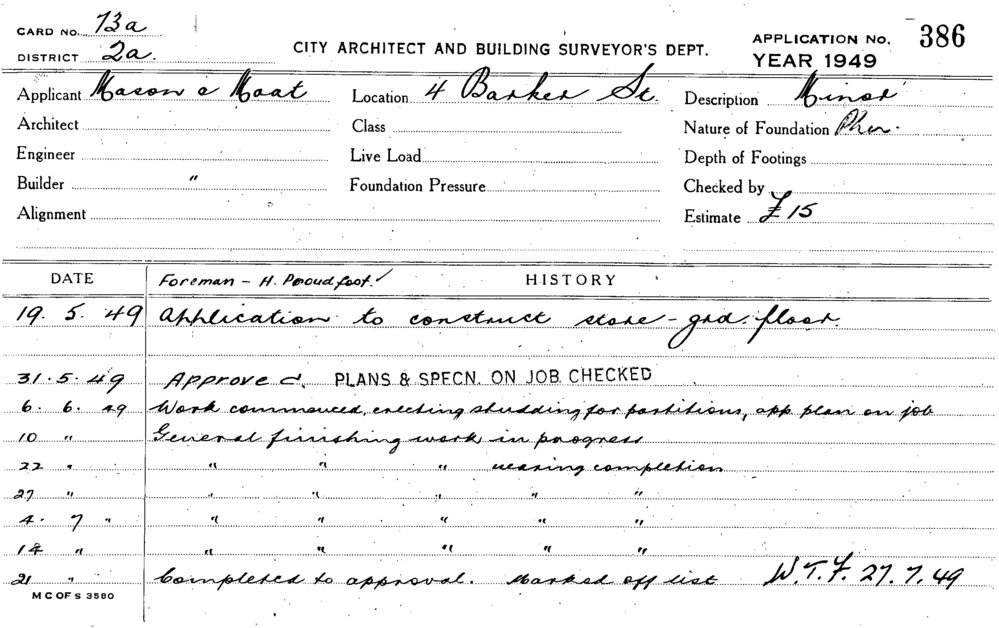 CARD NO. 73a
DISTRICT 2a.
CITY ARCHITECT AND BUILDING SURVEYOR'S DEPT.
APPLICATION NO. 386
YEAR 1949
Applicant Mason & Moat Location 4 Barker St. Description Minor
Architect Class Nature of Foundation
Engineer Live Load Depth of Footings
Builder " Foundation Pressure Checked by
Alignment Estimate £15
DATE Foreman - H. Proudfoot. HISTORY
19. 5. 49 Application to construct store - grd. floor.
31. 5. 49 Approved. PLANS & SPECN. ON JOB CHECKED
6. 6. 49 Work commenced, erecting studding for partitions, app. plan on job
10 " General finishing work in progress
22 " " " " nearing completion
27 " " " " " "
4. 7 " " " " " "
14 " " " " " "
21 " Completed to approval. Marked off list W.T.F. 27.7.49
M C OF S 3580